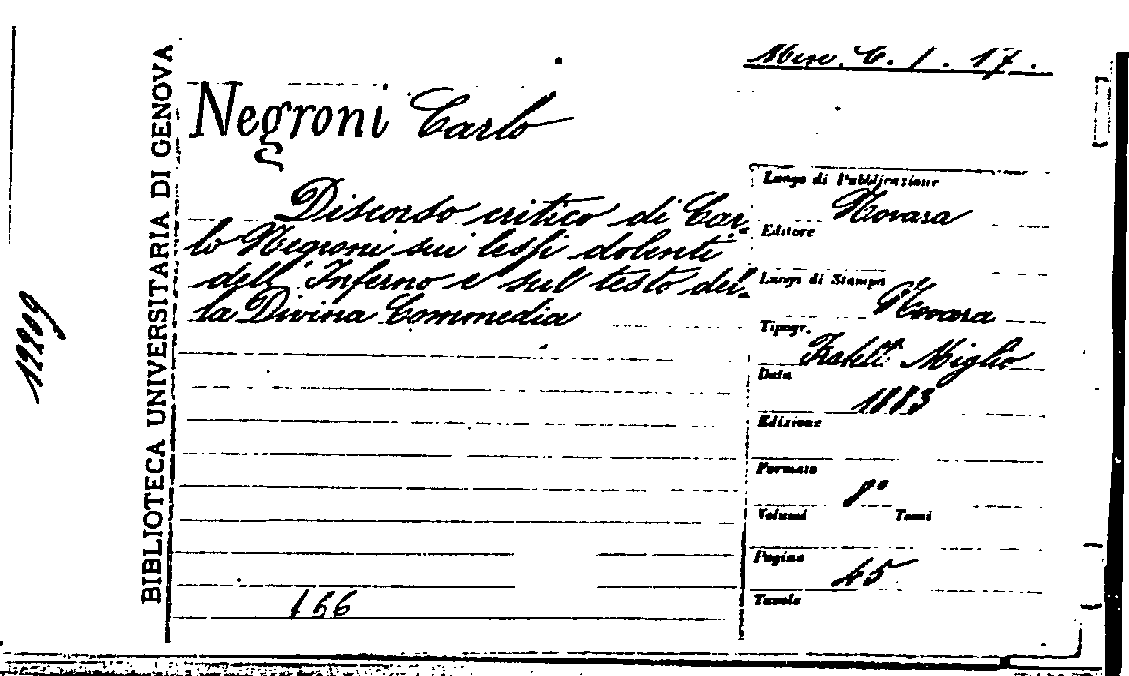 Misc. C. 1. 17.
Negroni Carlo
Discorso critico di Car-
lo Negroni sui lessi dolenti
dell' Inferno e sul testo del-
la Divina Commedia
166
Luogo di Pubblicazione
Novara
Editore
Luogo di Stampa
Novara
Tipogr.
Fratelli Miglio
Data
1883
Edizione
Formato
8°
Volumi Tomi
Pagine
45
Tavole
BIBLIOTECA UNIVERSITARIA DI GENOVA